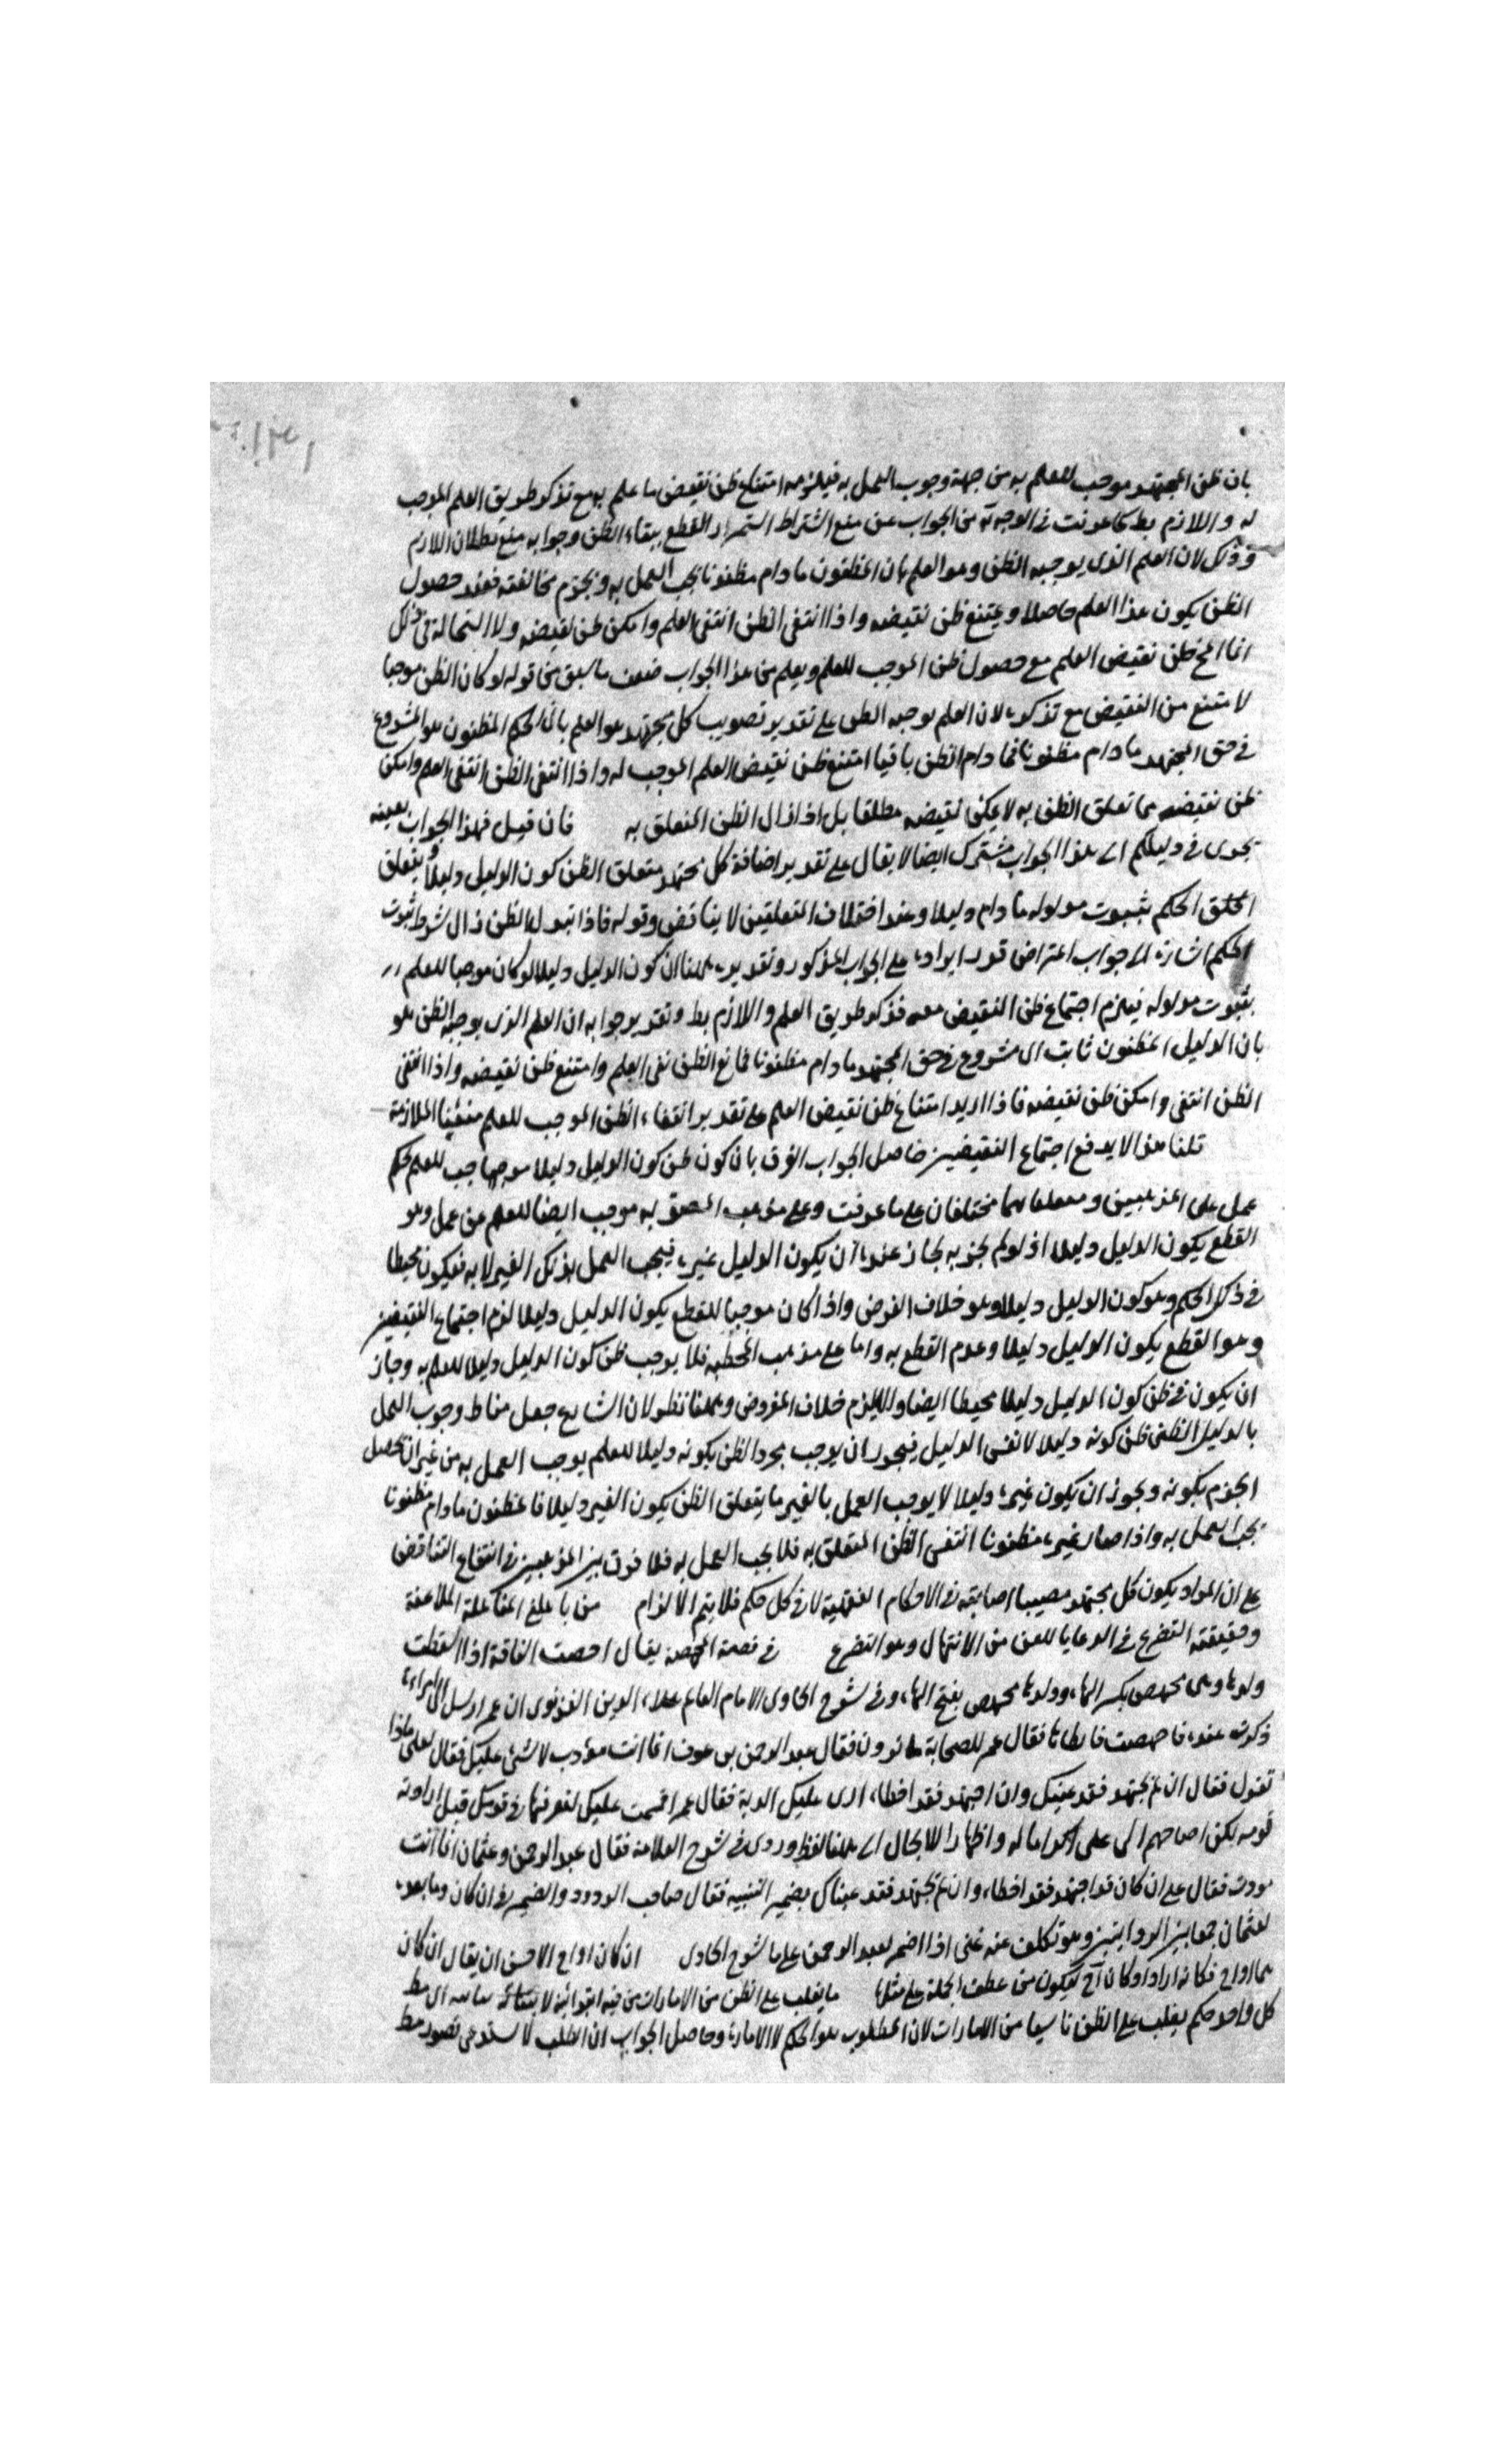 بان ظن المجتهد موجب للعلم به من جهة وجوب العمل به فيلزمه امتناع ظن نقيض ما علم به مع تذكر طريق العلم الموجب
له واللازم بط كما عرفت في الوجه من الجواب عن منع اشتراط استمرار القطع ببقاء الظن وجوابه منع بطلان اللازم
وذلك لان العلم الذي يوجبه الظن وهو العلم بان المظنون ما دام مظنونا يجب العمل به ويحرم مخالفته فعند حصول
الظن يكون هذا العلم حاصلا ويمتنع ظن نقيضه واذا انتفى الظن انتفى العلم وامكن ظن نقيضه ولا استحالة في ذلك
انما ظن نقيض العلم مع حصول ظن الموجب للعلم ويعلم من هذا الجواب ضعف ما سبق من قوله لو كان الظن موجبا
لامتنع من النقيض مع تذكره لان العلم يوجبه الظن على تقدير تصويب كل مجتهد هو العلم بان الحكم المظنون هو المشروع
في حق المجتهد ما دام مظنونا فما دام الظن باقيا امتنع ظن نقيض العلم الموجب له واذا انتفى الظن انتفى العلم وامكن
ظن نقيضه مما تعلق الظن به لا يمكن نقيضه مطلقا بل اذا زال الظن المتعلق به فان قيل فهذا الجواب بعينه
يجرى في دليلكم اي هذا الجواب مشترك ايضا لا يقال على تقدير اضافة كل مجتهد متعلق الظن كون الدليل دليلا ويتعلق
الحكم بثبوت مدلوله ما دام دليلا وعند اختلاف المتعلقين لا يتناقض وقوله فاذا تبدل الظن زال شرط ثبوت
الحكم اشارة الى جواب اعتراض قدر ايراده على الجواب المذكور وتقديره هكذا ان كون الدليل دليلا لو كان موجبا للعلم
بثبوت مدلوله فيلزم اجتماع ظن النقيض معه فذكر طريق العلم واللازم بط وتقدير جوابه ان العلم الذي يوجبه الظن هو
بان الدليل المظنون ثابت اي مشروع في حق المجتهد ما دام مظنونا فمانع الظن نفى العلم وامتنع ظن نقيضه واذا انتفى
الظن انتفى وامكن ظن نقيضه فاذا اريد امتناع ظن نقيض العلم على تقدير انتفاء الظن الموجب للعلم منعنا الملازمة
قلنا هذا لا يدفع اجتماع النقيضين حاصل الجواب الفرق بان كون ظن كون الدليل دليلا موجبا للعلم حكم
عملي على المذهبين ومتعلقاهما مختلفان على ما عرفت وعلى مذهب المصوبه موجب ايضا للعلم من عمل وهو
القطع بكون الدليل دليلا اذ لو لم يجز به لجاز عنده ان يكون الدليل غيره فيجب العمل بذلك الغير لا به فيكون مخطئا
في ذلك الحكم وهو كون الدليل دليلا وهو خلاف الفرض واذا كان موجبا للقطع بكون الدليل دليلا لزم اجتماع النقيضين
وهو القطع بكون الدليل دليلا وعدم القطع به واما على مذهب المخطئه فلا يوجب ظن كون الدليل دليلا للعلم به وجاز
ان يكون في ظن كون الدليل دليلا مخطئا ايضا ولا يلزم خلاف المفروض وههنا نظر لان الشارع جعل مناط وجوب العمل
بالدليل الظني ظن كونه دليلا لا نفس الدليل فيجوز ان يوجب مجرد الظن بكونه دليلا للعلم بوجوب العمل به من غير ان يحصل
الجزم بكونه ويجوز ان يكون غيره دليلا لا يوجب العمل بالغير ما يتعلق الظن بكون الغير دليلا فالمظنون ما دام مظنونا
يجب العمل به واذا صار غيره مظنونا انتفى الظن المتعلق به فلا يجب العمل به فلا فرق بين المذهبين في انتفاء التناقض
على ان المراد بكون كل مجتهد مصيبا اصابته في الاحكام الفقهية لا في كل حكم فلا يتم الالزام من باهلني المفاعلة الملاعنة
وحقيقته التضرع في الدعاء باللعن من الابتهال وهو التضرع في قصة المجهضة يقال اجهضت الناقة اذا اسقطت
ولدها وهي مجهض بكسر الهاء وولدها مجهض بفتح الهاء وفي شرح الحاوي للامام العالم علاء الدين القونوي ان عمر ارسل الى امراة
ذكرت عنده فاجهضت فقال عمر للصحابة ما ترون فقال عبد الرحمن بن عوف انما انت مؤدب لا شئ عليك فقال لعلي ماذا
تقول فقال ان لم يجتهد فقد غشك وان اجتهد فقد اخطاء ارى عليك الدية فقال عمر اقسمت عليك لتفرقنها في قومك قبل اراد به
قومه لكن اضافهم الى علي اكراما له واظهارا للاجلال اي هذا لفظه وروى في شرح العلامة فقال عبد الرحمن وعثمان انما انت
مودب فقال علي ان كان قد اجتهد فقد اخطاء وان لم يجتهد فقد غشاك بضمير التثنيه فقال صاحب الردود والضمير في ان كان وما بعده
لعثمان جمعا بين الروايتين وهو تكلف عنه غنى اذا اضمر لعبد الرحمن على ما شرح الحاوى ان كان اراد الاحسن ان يقال ان كان
فكانه اراد او كان فيكون من عطف الجملة على مثلها ما يغلب على الظن من الامارات من فيه ابتدائية لا بيانية
كل واحد حكم يغلب على الظن ناشيا من الامارات لان المطلوب هو الحكم لا الامارة وحاصل الجواب ان الطلب لا يستدعي تصور